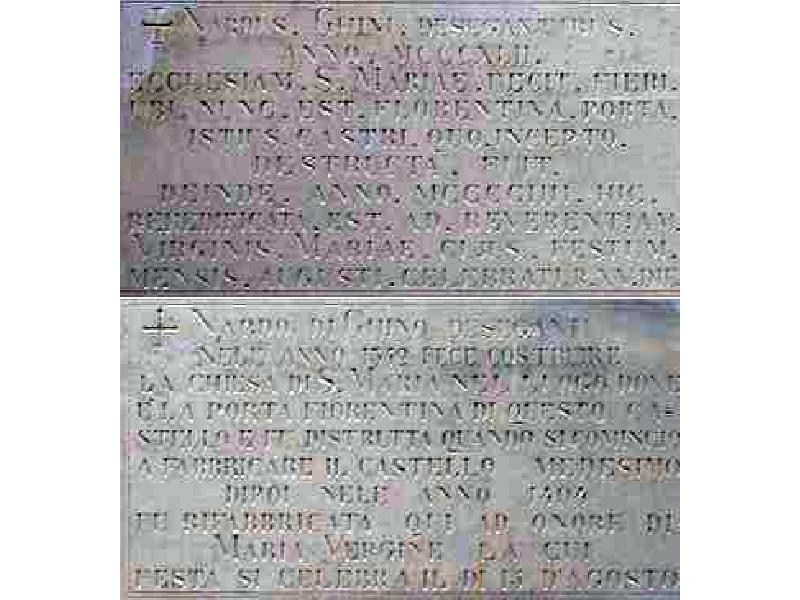 NARDUS. GHINI. DESEGANTIBUS.
ANNO. MCCCXLII.
ECCLESIAM. S. MARIAE. FECIT. FIERI.
UBI. NUNC. EST. FLORENTINA. PORTA.
ISTIUS. CASTRI. QUO. INCEPTO.
DESTRUCTA. FUIT.
DEINDE. ANNO. MCCCCIIII. HIC.
REHEDIFICATA. EST. AD. REVERENTIAM.
VIRGINIS. MARIAE. CUJUS. FESTUM.
MENSIS. AUGUSTI. CELEBRATUR. XV. DIE
NARDO DI GHINO DESEGANTI
NELL' ANNO 1342 FECE COSTRUIRE
LA CHIESA DI S. MARIA NEL LUOGO DOVE
E LA PORTA FIORENTINA DI QUESTO CA-
STELLO E FU DISTRUTTA QUANDO SI COMINCIO
A FABBRICARE IL CASTELLO MEDESIMO
DIPOI NELL' ANNO 1404
FU RIFABBRICATA QUI AD ONORE DI
MARIA VERGINE LA CUI
FESTA SI CELEBRA IL DI 15 D'AGOSTO